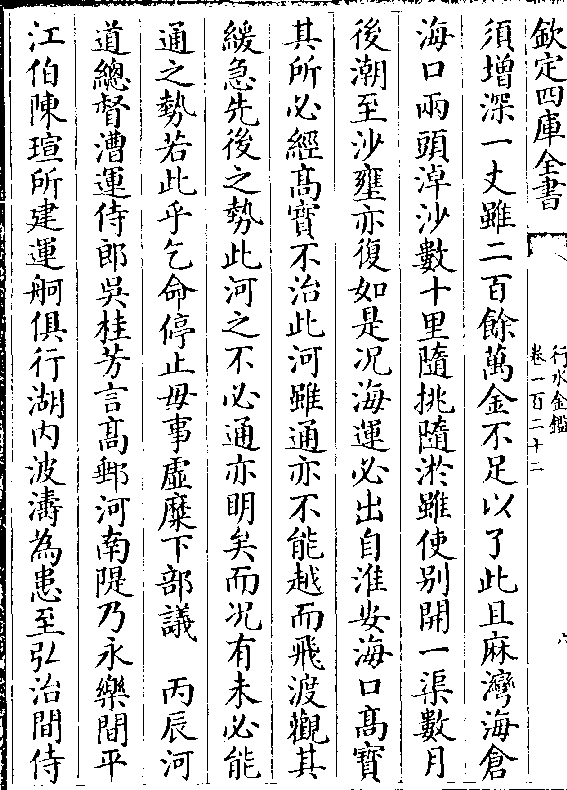 欽定四庫全書
行水金鑑
卷一百二十二
六
須增深一丈雖二百餘萬金不足以了此且麻灣海倉
海口兩頭淖沙數十里隨挑隨淤雖使别開一渠數月
後潮至沙壅亦復如是况海運必出自淮安海口髙寳
其所必經髙寳不治此河雖通亦不能越而飛渡觀其
緩急先後之勢此河之不必通亦明矣而况有未必能
通之勢若此乎乞命停止毋事虛糜下部議　丙辰河
道總督漕運侍郎吳桂芳言髙郵河南隄乃永樂間平
江伯陳瑄所建運舸俱行湖内波濤為患至弘治間侍